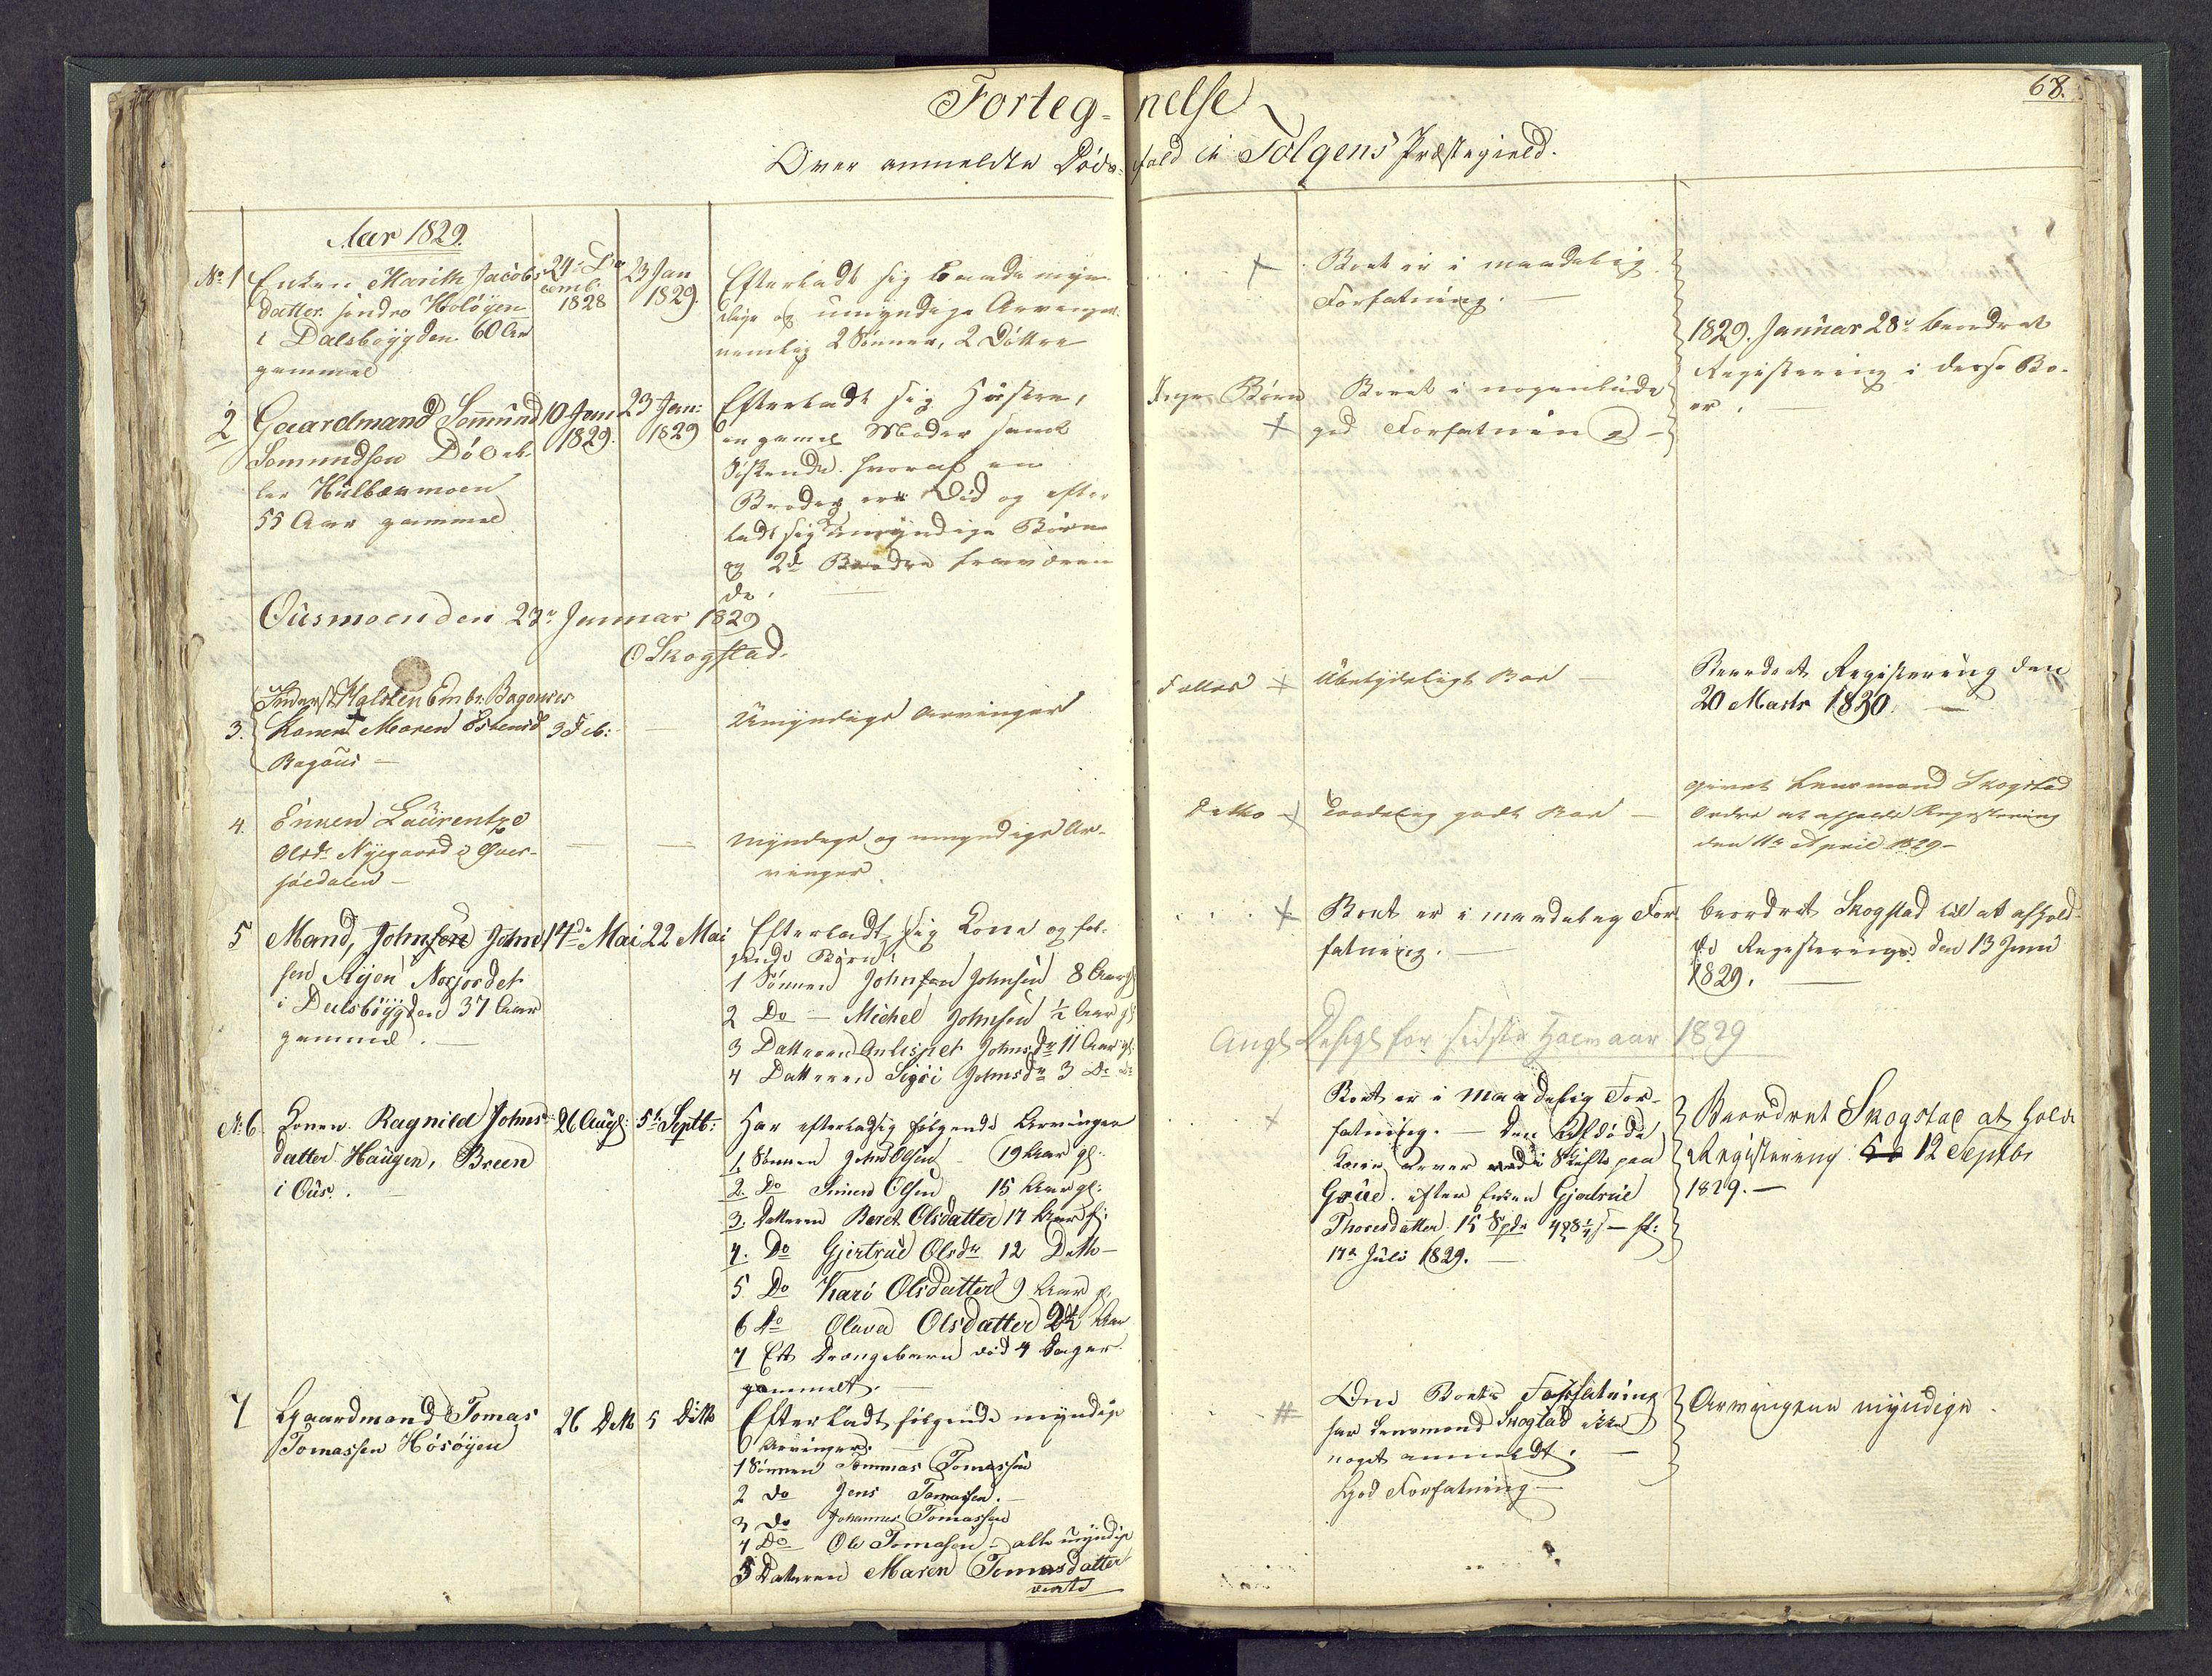 68.
Forteg- nelse
Over anmeldte Døds- fald i Tolgens Præstegield.
Aar 1829.
No 1 Enken Marith Jacobs-
datter søndre Holøyen
i Dalsbøygden 60 Aar
gammel
24de De
cembr
1828
23 Jan
1829.
Efterladt sig baade myn-
dige og umyndige Arvinger
nemlig 2 Sønner, 2 Døttre
+ Boet er i maadelig
Forfatning. —
1829. Januar 28de beordret
Registering i disse Bo-
er. —
2 Gaardmand Somund
Somundsen
Hulbækmoen
55 Aar gammel
10 Jan
1829.
23 Jan:
1829
Efterladt sig Hustru,
en gamel Moder samt
Søskende. hvoraf en
Broder er Død og efter
ladt sig umyndige Børn
og 2de Brødre fraværen
de.
Ingen Børn
+ Boet i nogenlunde
god Forfatning —
Ousmoen den 23de Januar 1829
O Skogstad.
3. Inderst Halsten Embr. Bagouses
Kone Maren Estensd
Bagous —
3 Feb:
—
Umyndige Arvinger
Fælles + Ubetydeligt Boe —
Beordret Registering den
20 Marts 1830. —
4. Enken Laurentze
Olsdr Nyegaard i Øver-
søedalen —
— —
Myndige og umyndige Ar-
vinger
Ditto + Taalelig godt Boe —
givet Lensmand Skogstad
Ordre at afholde Registering
den 11te April 1829 —
5 Mand, John John
sen Ryen Norjordet
i Dalsbøygden 37 Aar
gammel. —
17de Mai
22 Mai
Efterladt sig Kone og føl-
gende Børn:
1 Sønnen John Johnsen 8 Aar gl
2 Do — Michel Johnsen ½ Aar gl
3 Datteren Anlispet Johnsdr 11 Aar gl:
4 Datteren Sigri Johnsdr 3 Do Do
+ Boet er i maadelig For
fatning. —
beordret Skogstad til at afhold-
de Registering den 13 Juni
1829. —
Angl Desigl for sidste Halvaar 1829
No 6 Konen Ragnild Johns-
datter Haugen, Breen
i Ous. —
26 Aug:
5te Septb:
Har efterladt sig følgende Arvinger
1. Sønnen John Olsen — 19 Aar gl:
2. Do Simen Olsen 15 Aar gl:
3. Datteren Beret Olsdatter 17 Aar gl:
4. Do Gjertrud Olsdr 12 Ditto —
5. Do Kari Olsdatter 9 Aar gl.
6 Do Olava Olsdatter 2½ Aar
7 Ett Drengebarn død 4 Dager
gammelt. —
+ Boet er i maadelig For-
fatning. — Den Afdøde
Kone arver ved i Skifte paa
Grue efter Enken Gjertrud
Thoresdatter 15 Spd
17de Juli 1829. —
Beordret Skogstad at holde
Registering 12 Septbr
1829. —
7 Gaardmand Tomas
Tomassen Hôsøyen
26 Ditto
5 Ditto
Efterladt følgende myndige
Arvinger. —
1 Sønnen Tommas Tomassen
2 Do Jens Tomassen. —
3 Do Johannes Tomassen
4 Do Ole Tomasen — alle myndige
5 Datteren Maren Tomasdatter
verte
# Om Boets Forfatning
har Lensmand Skogstad ikke
noget anmeldt. —
God Forfatning —
Arvingene myndige.